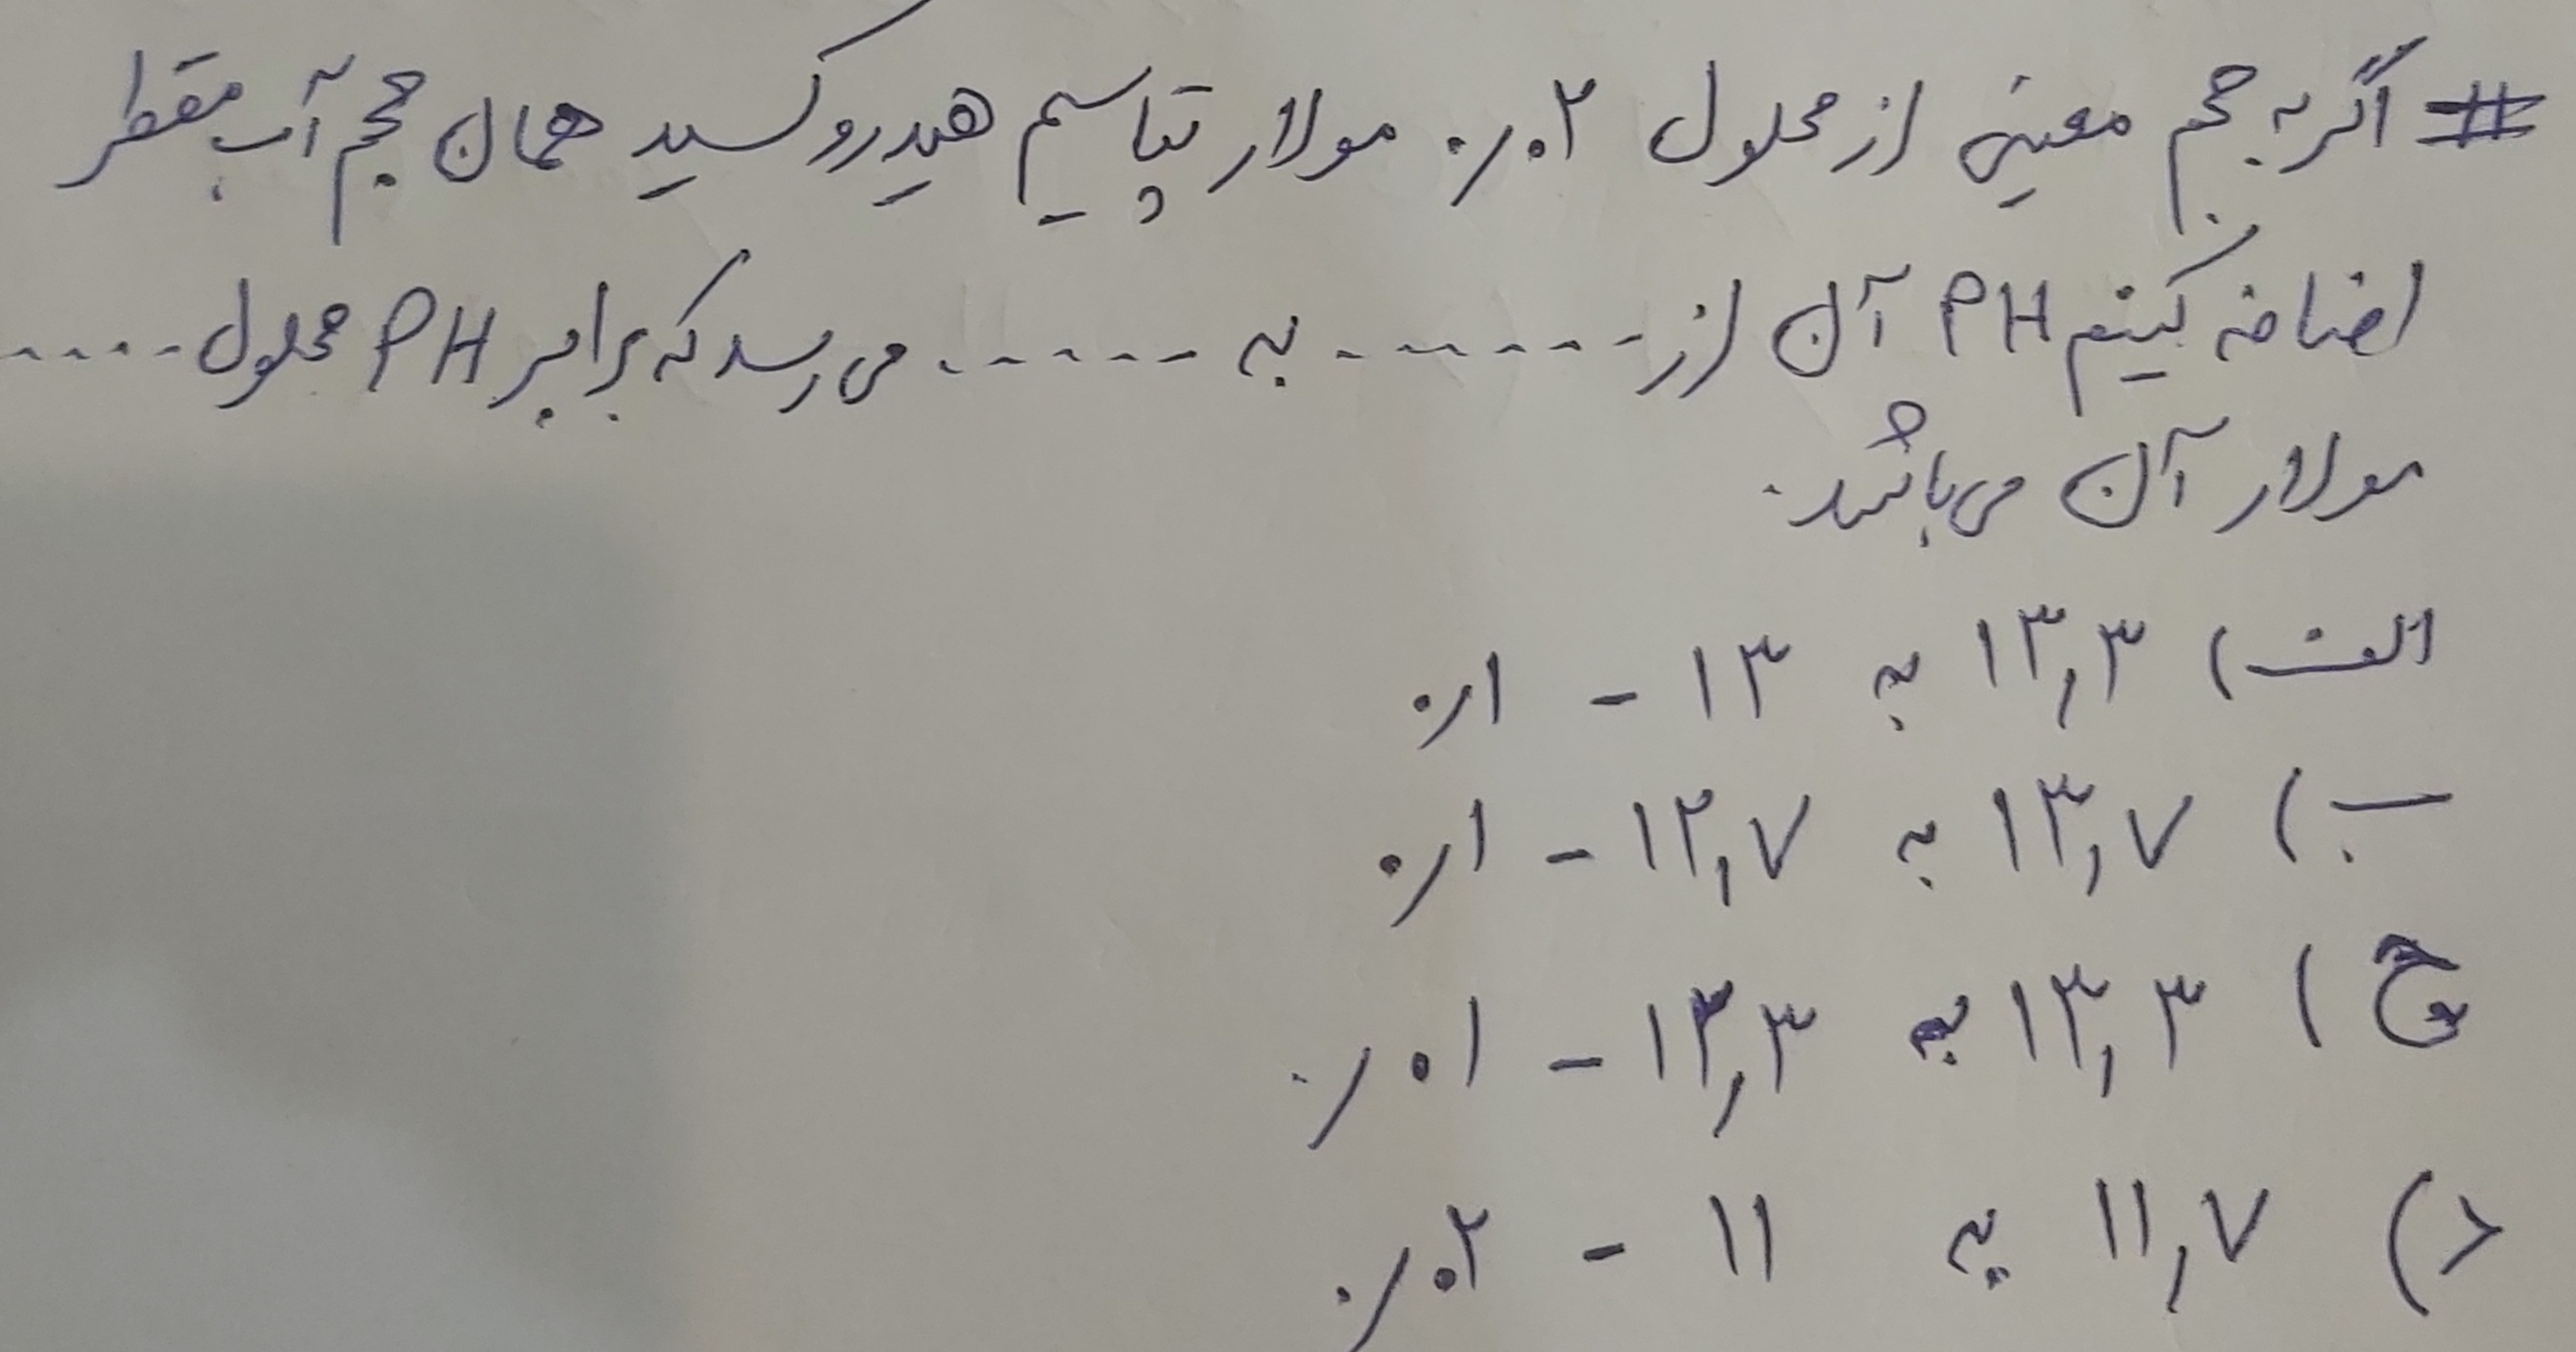 # اگر به حجم معینی از محلول ۰٫۰۲ مولار پتاسیم هیدروکسید همان حجم آب مقطر
اضافه کنیم PH آن از ....... به ...... می‌رسد که برابر PH محلول .....
مولار آن می‌باشد.
الف) ۱۳٫۳ به ۱۳ - ۰٫۱
ب) ۱۳٫۷ به ۱۲٫۷ - ۰٫۱
ج) ۱۳٫۳ به ۱۲٫۳ - ۰٫۰۱
د) ۱۱٫۷ به ۱۱ - ۰٫۰۲